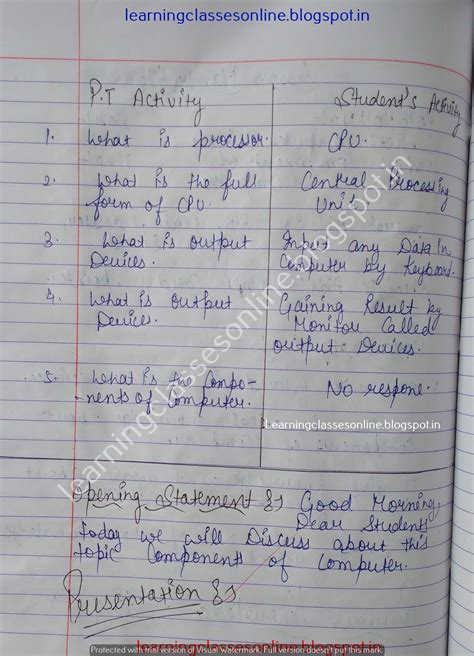 learningclassesonline.blogspot.in
P.T Activity
Student's Activity
1. What is processor.
CPU.
2. What is the full
form of CPU.
Central Processing
Unit
3. What is output
Devices.
Input any Data in
Computer by Keyboard.
4. What is output
Devices.
Gaining Result by
Monitor Called
output Devices.
5. What is the compo-
-nents of computer.
No respone.
Learningclassesonline.blogspot.in
learningclassesonline.blogspot.in
Opening Statement :- Good Morning,
Dear Students
Today we will Discuss about this
topic Components of Computer.
Presentation :-
Protected with trial version of Visual Watermark. Full version doesn't put this mark.
learningclassesonline.blogspot.in